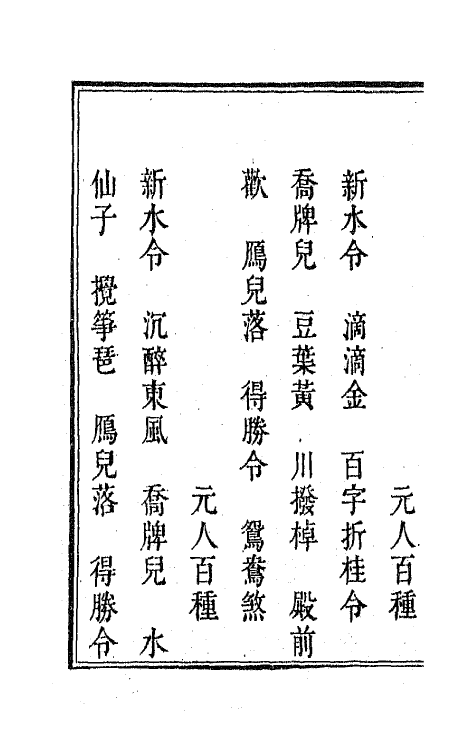 元人百種
新水令　滴滴金　百字折桂令
喬牌兒　豆葉黃　川撥棹　殿前
歡　鴈兒落　得勝令　鴛鴦煞
元人百種
新水令　沉醉東風　喬牌兒　水
仙子　攪筝琶　鴈兒落　得勝令